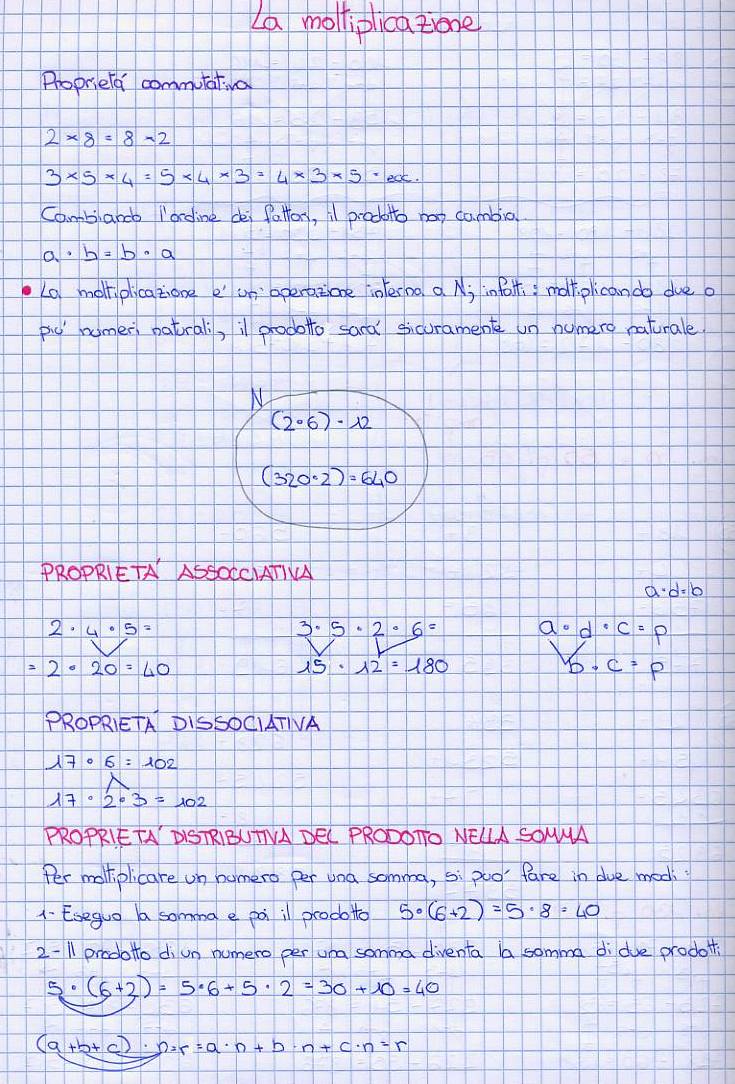 La moltiplicazione
Proprietá commutativa
2 × 8 = 8 × 2
3 × 5 × 4 = 5 × 4 × 3 = 4 × 3 × 5 = ecc.
Cambiando l'ordine dei fattori, il prodotto non cambia.
a • b = b • a
• La moltiplicazione e' un' operazione interna a N; infatti: moltiplicando due o
piu' numeri naturali, il prodotto sara' sicuramente un numero naturale.
N
(2•6) = 12
(320•2) = 640
PROPRIETA' ASSOCCIATIVA
a•d=b
2 • 4 • 5 = 3 • 5 • 2 • 6 = a • d • c = p
= 2 • 20 = 40 15 • 12 = 180 b • c = p
PROPRIETA' DISSOCIATIVA
17 • 6 = 102
17 • 2 • 3 = 102
PROPRIETA' DISTRIBUTIVA DEL PRODOTTO NELLA SOMMA
Per moltiplicare un numero per una somma, si puo' fare in due modi:
1- Eseguo la somma e poi il prodotto 5•(6+2) = 5•8 = 40
2- Il prodotto di un numero per una somma diventa la somma di due prodotti
5 • (6+2) = 5•6 + 5 • 2 = 30 + 10 = 40
(a+b+c) • n=r = a•n + b•n + c•n = r